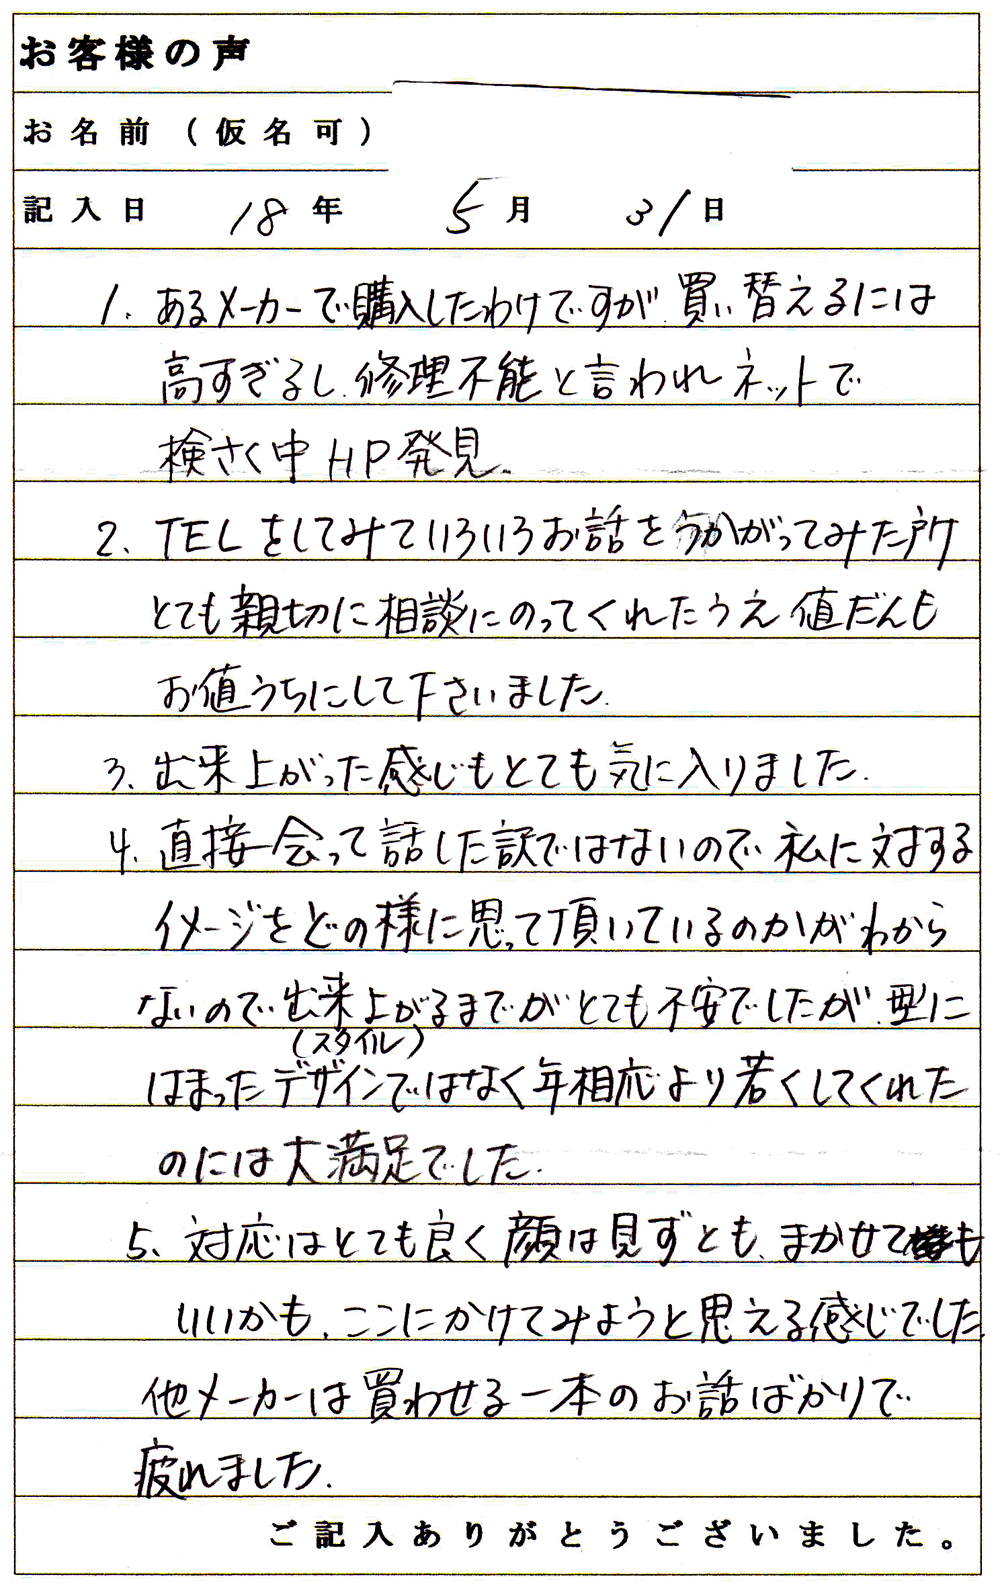 お客様の声
お名前(仮名可)
記入日 18年 5月 31日
1. あるメーカーで購入したわけですが、買い替えるには
高すぎるし、修理不能と言われネットで
検さく中HP発見。
2、TELをしてみていろいろお話をうかがってみた所
とても親切に相談にのってくれたうえ値だんも
お値うちにして下さいました。
3、出来上がった感じもとても気に入りました。
4、直接会って話した訳ではないので、私に対する
イメージをどの様に思って頂いているのかがわから
ないので、出来上がるまでがとても不安でしたが、型に
(スタイル)
はまったデザインではなく年相応より若くしてくれた
のには大満足でした。
5、対応はとても良く顔は見ずとも、まかせても
いいかも、ここにかけてみようと思える感じでした。
他メーカーは買わせる一本のお話ばかりで
疲れました。
ご記入ありがとうございました。